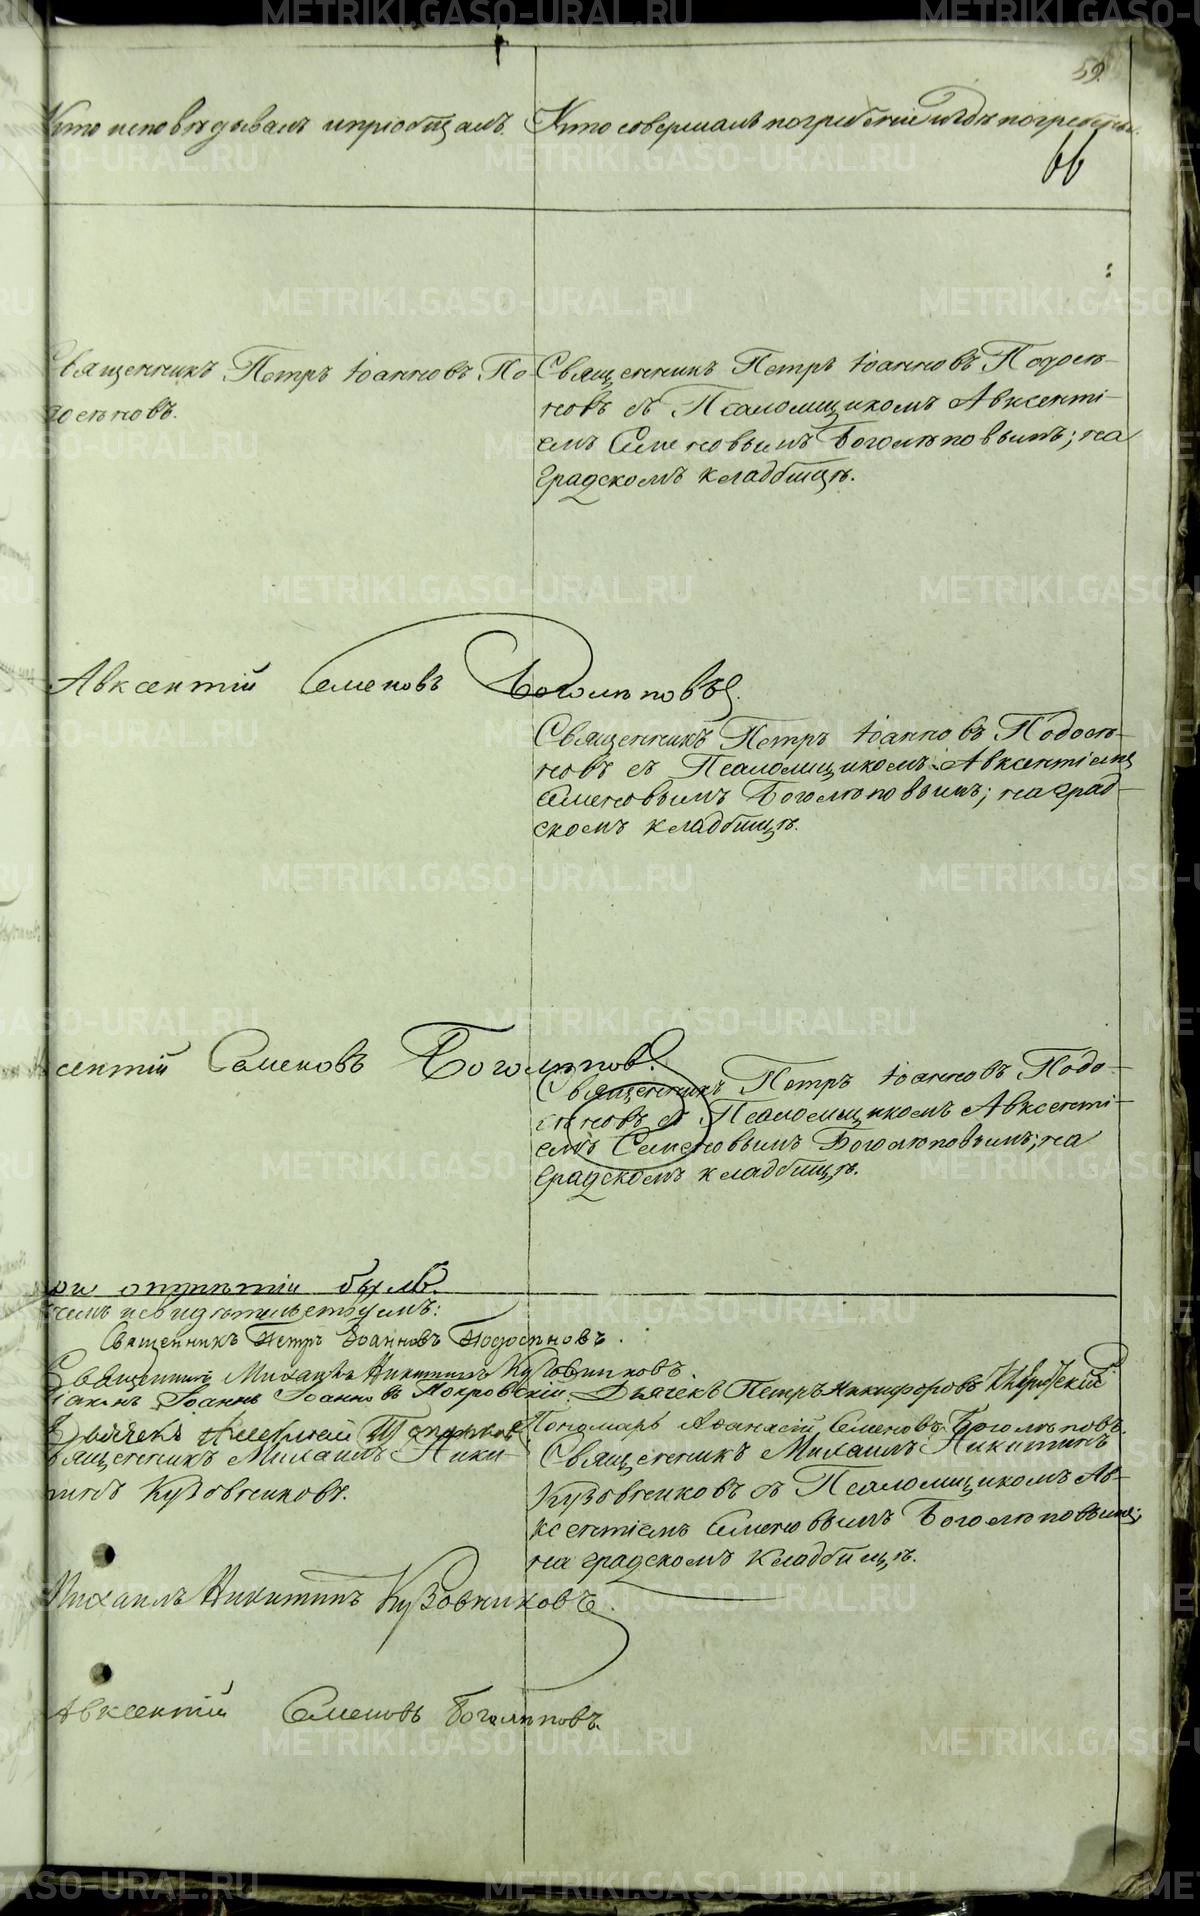 59.
Кто исповѣдывалъ и пріобщалъ. Кто совершалъ погребеніе и гдѣ погребены.
66
Священникъ Петръ Іоанновъ По-
досеновъ.
Священникъ Петръ Іоанновъ Подосе-
новъ съ Псаломщикомъ Авксенті-
емъ Семеновымъ Боголѣповымъ; на
градскомъ кладбищѣ.
Авксентій Семеновъ Боголѣповъ.
Священникъ Петръ Іоанновъ Подосе-
новъ съ Псаломщикомъ Авксентіемъ
Семеновымъ Боголѣповымъ; на град-
скомъ кладбищѣ.
сентій Семеновъ Боголѣповъ.
Священникъ Петръ Іоанновъ Подо-
сеновъ съ Псаломщикомъ Авксенті-
емъ Семеновымъ Боголѣповымъ; на
градскомъ кладбищѣ.
ри отпѣтіи былъ.
чемъ и свидѣтельствуемъ:
Священникъ Петръ Іоанновъ Подосеновъ.
Священникъ Михаилъ Никитинъ Кузовниковъ.
Діаконъ Іоаннъ Іоанновъ Покровскій. Дьячекъ Петръ Никифоровъ
Дьячекъ Пономарь Аѳанасій Семеновъ Боголѣповъ.
Священникъ Михаилъ Ники-
тинъ Кузовниковъ.
Священникъ Михаилъ Никитинъ
Кузовниковъ съ Псаломщикомъ Ав-
ксентіемъ Семеновымъ Боголѣповымъ;
на градскомъ кладбищѣ.
Михаилъ Никитинъ Кузовниковъ.
Авксентій Семеновъ Боголѣповъ.
METRIKI.GASO-URAL.RU